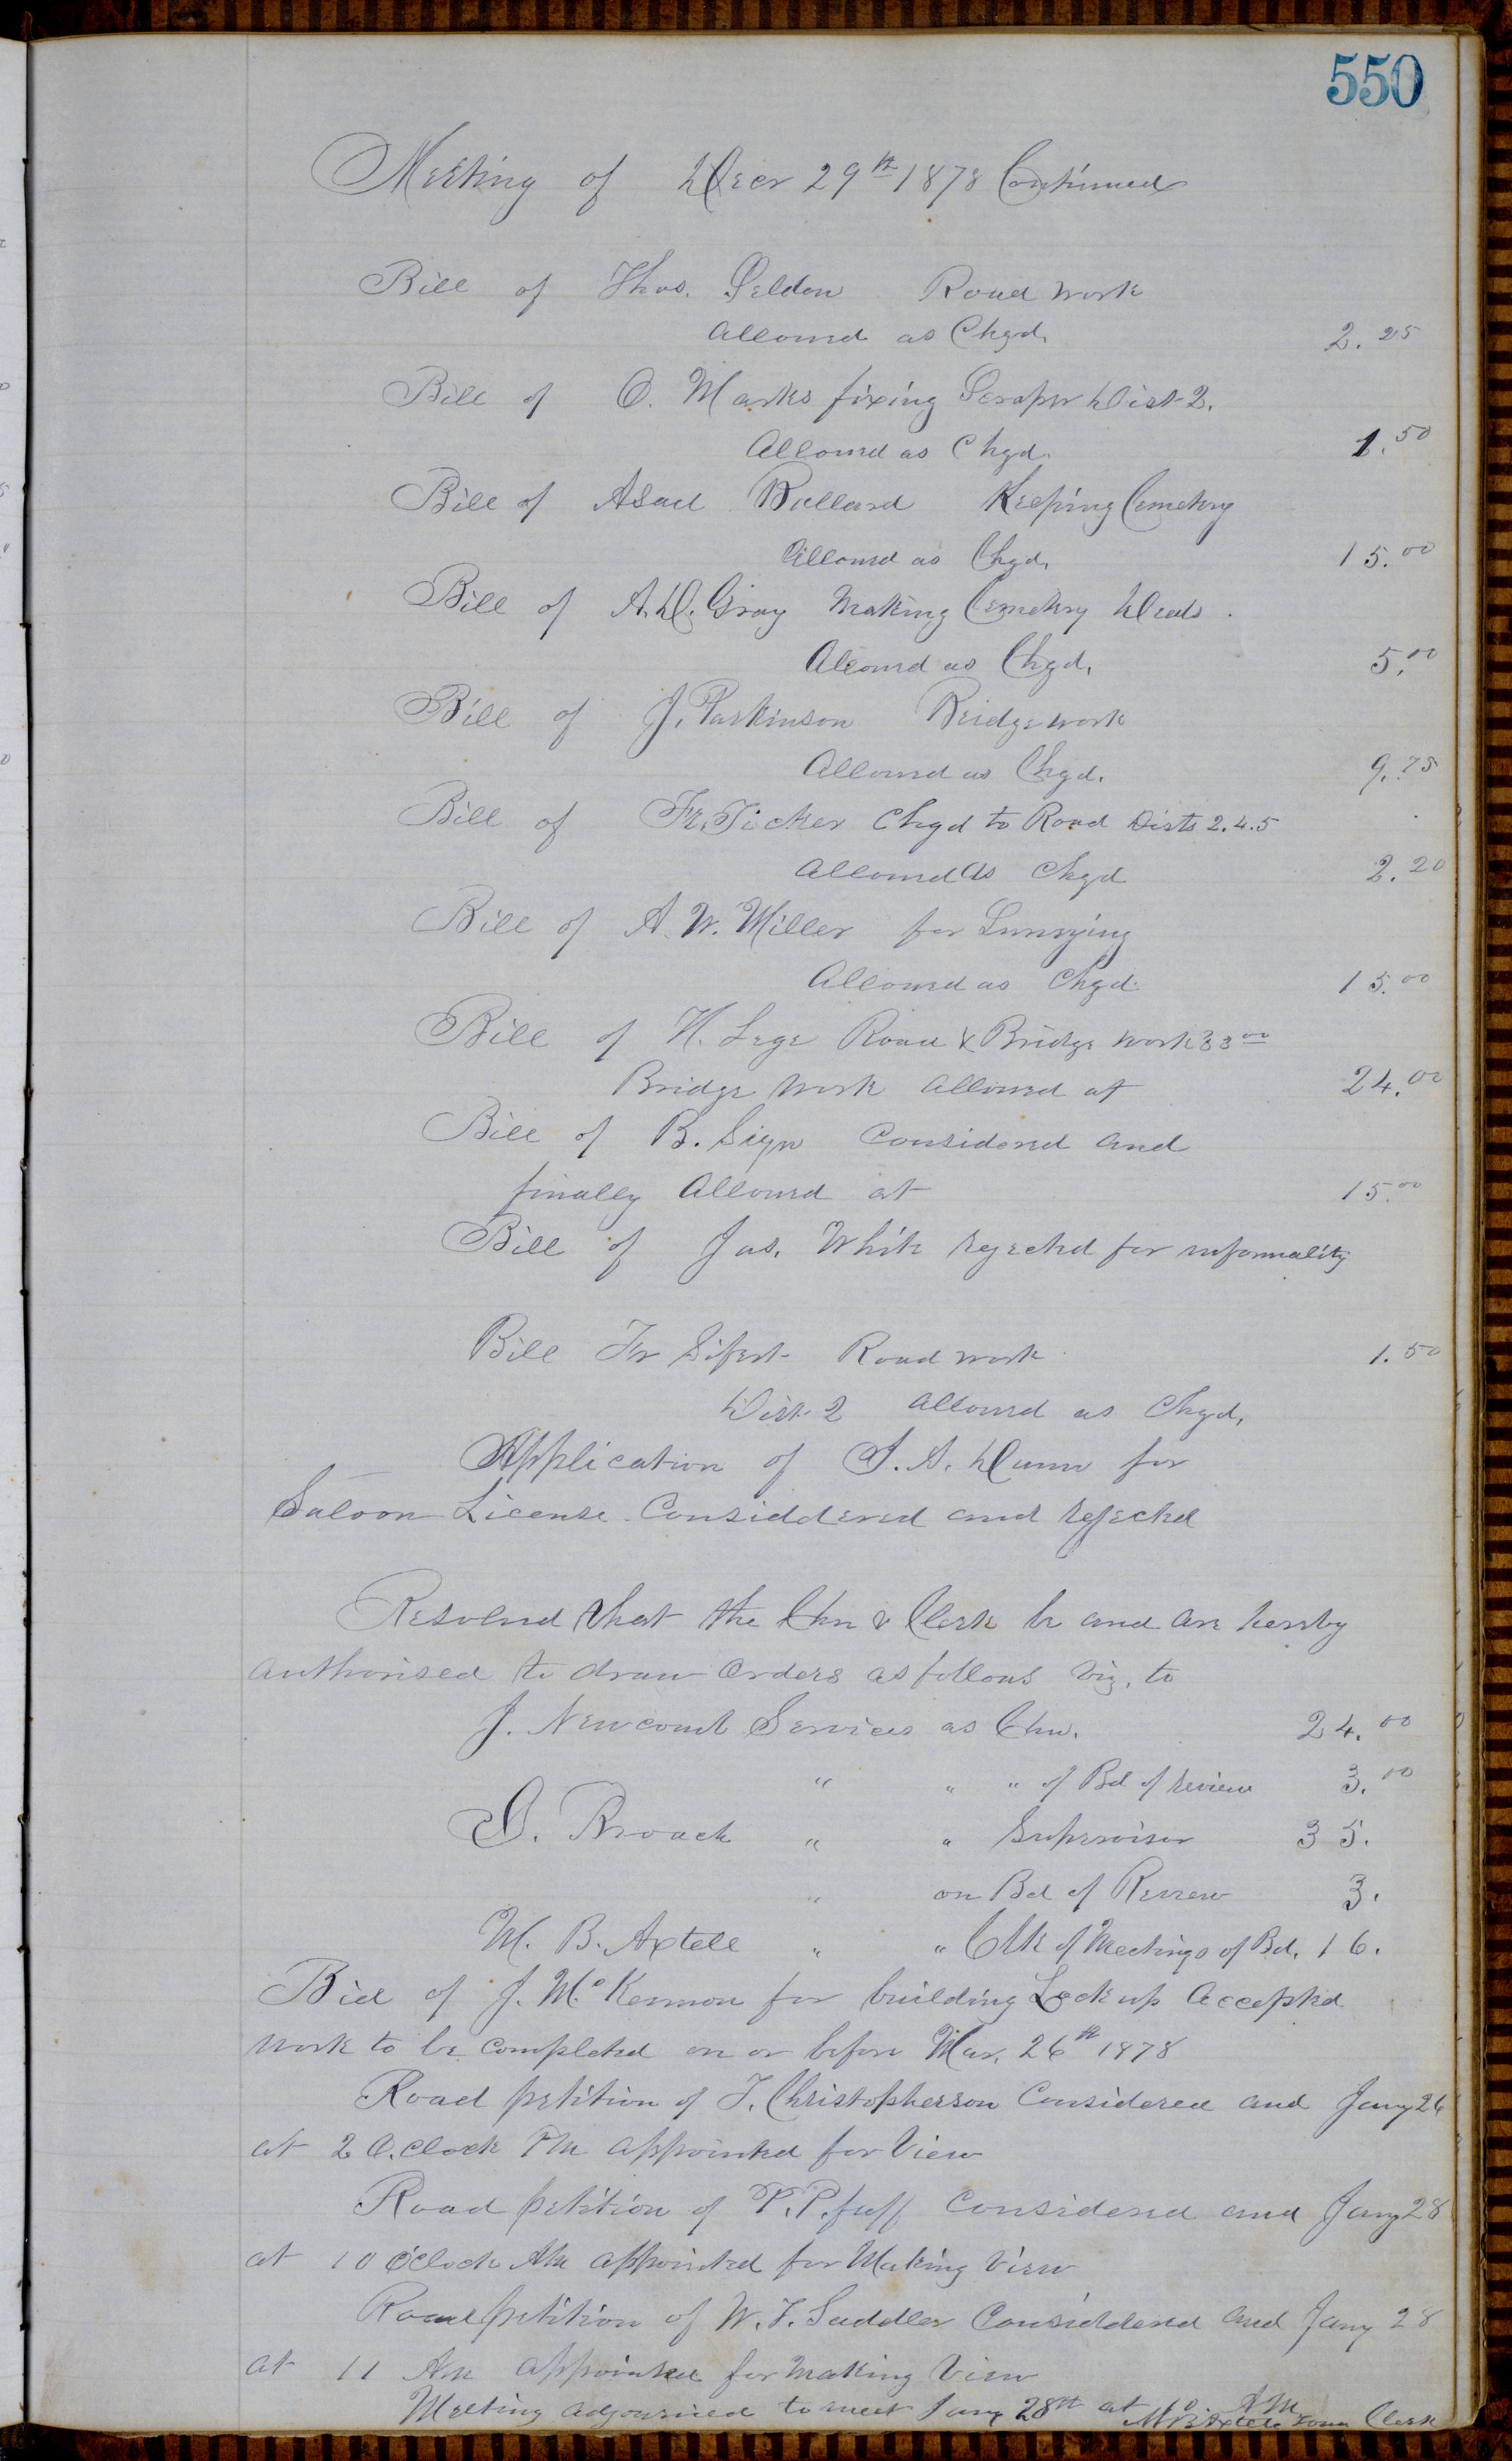 550
Meeting of Decr 29th 1878 Continued
Bill of Thos. Seldon Road work
Allowed as Chgd. 2.25
Bill of O. Marks fixing Scraper Dist 2.
Allowed as Chgd. 1.50
Bill of Asael Ballard Keeping Cemetery
Allowed as Chgd. 15.00
Bill of A.D. Gray Making Cemetery Deeds.
Alowed as Chgd. 5.00
Bill of J. Parkinson Bridge work
Allowed as Chgd. 9.75
Bill of Fr. Ticker Chgd to Road Dists 2.4.5
Allowed as Chgd 2.20
Bill of A. W. Miller for Surveying
Allowed as Chgd. 15.00
Bill of H. Lege Road & Bridge work 33 00
Bridge work Allowed at 24.00
Bill of B. Sign Considered and
finally Allowed at 15.00
Bill of Jas. White rejected for informality
Bill Fr Sifert Road work 1.50
Dist 2 Allowed as Chgd.
Application of S. A. Dunn for
Saloon License Considdered and rejected
Resolved that the Chn & Clerk be and are hereby
authorised to draw Orders as follows viz, to
J. Newcomb Services as Chn. 24.00
" " " of Bd of review 3.00
G. Broach " " Supervisor 35.
" on Bd of Review 3.
M. B. Axtell " " Clk of Meetings of Bd. 16.
Bid of J. Mc Kennon for building Lock up Accepted
work to be completed on or before Mar. 26th 1878
Road petition of T. Christopherson Considered and Jany 26
at 2 O.clock Pm appointed for View
Road petition of P. P. Considered and Jany 28
at 10 O'Clock Am appointed for Making View
Road petition of W. T. Saddler Considdered and Jany 28
at 11 Am appointed for making View
Meeting adjourned to meet Jany 28th at 10 A M
M B Axtell Town Clerk